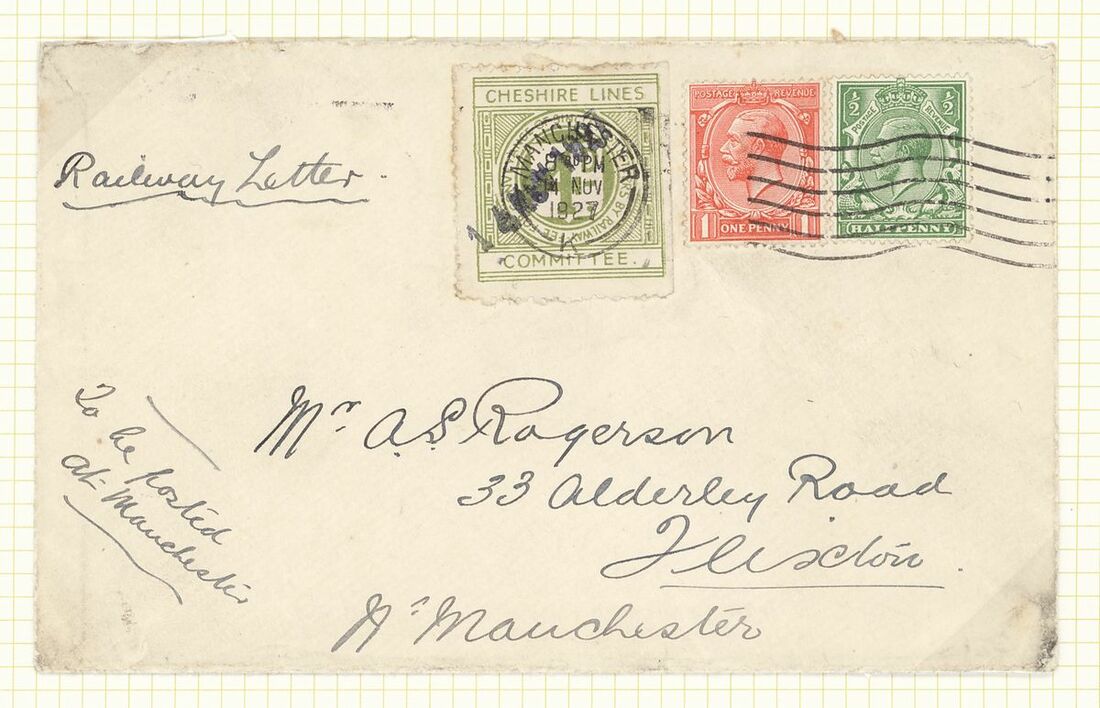 Railway Letter.
CHESHIRE LINES
COMMITTEE.
MANCHESTER
PM
14 NOV
1927
K
POSTAGE REVENUE
1 1
ONE PENNY
½ ½
POSTAGE REVENUE
HALFPENNY
To be posted
at Manchester
Mr A.S. Rogerson
33 Alderley Road
Flixton.
Nr Manchester